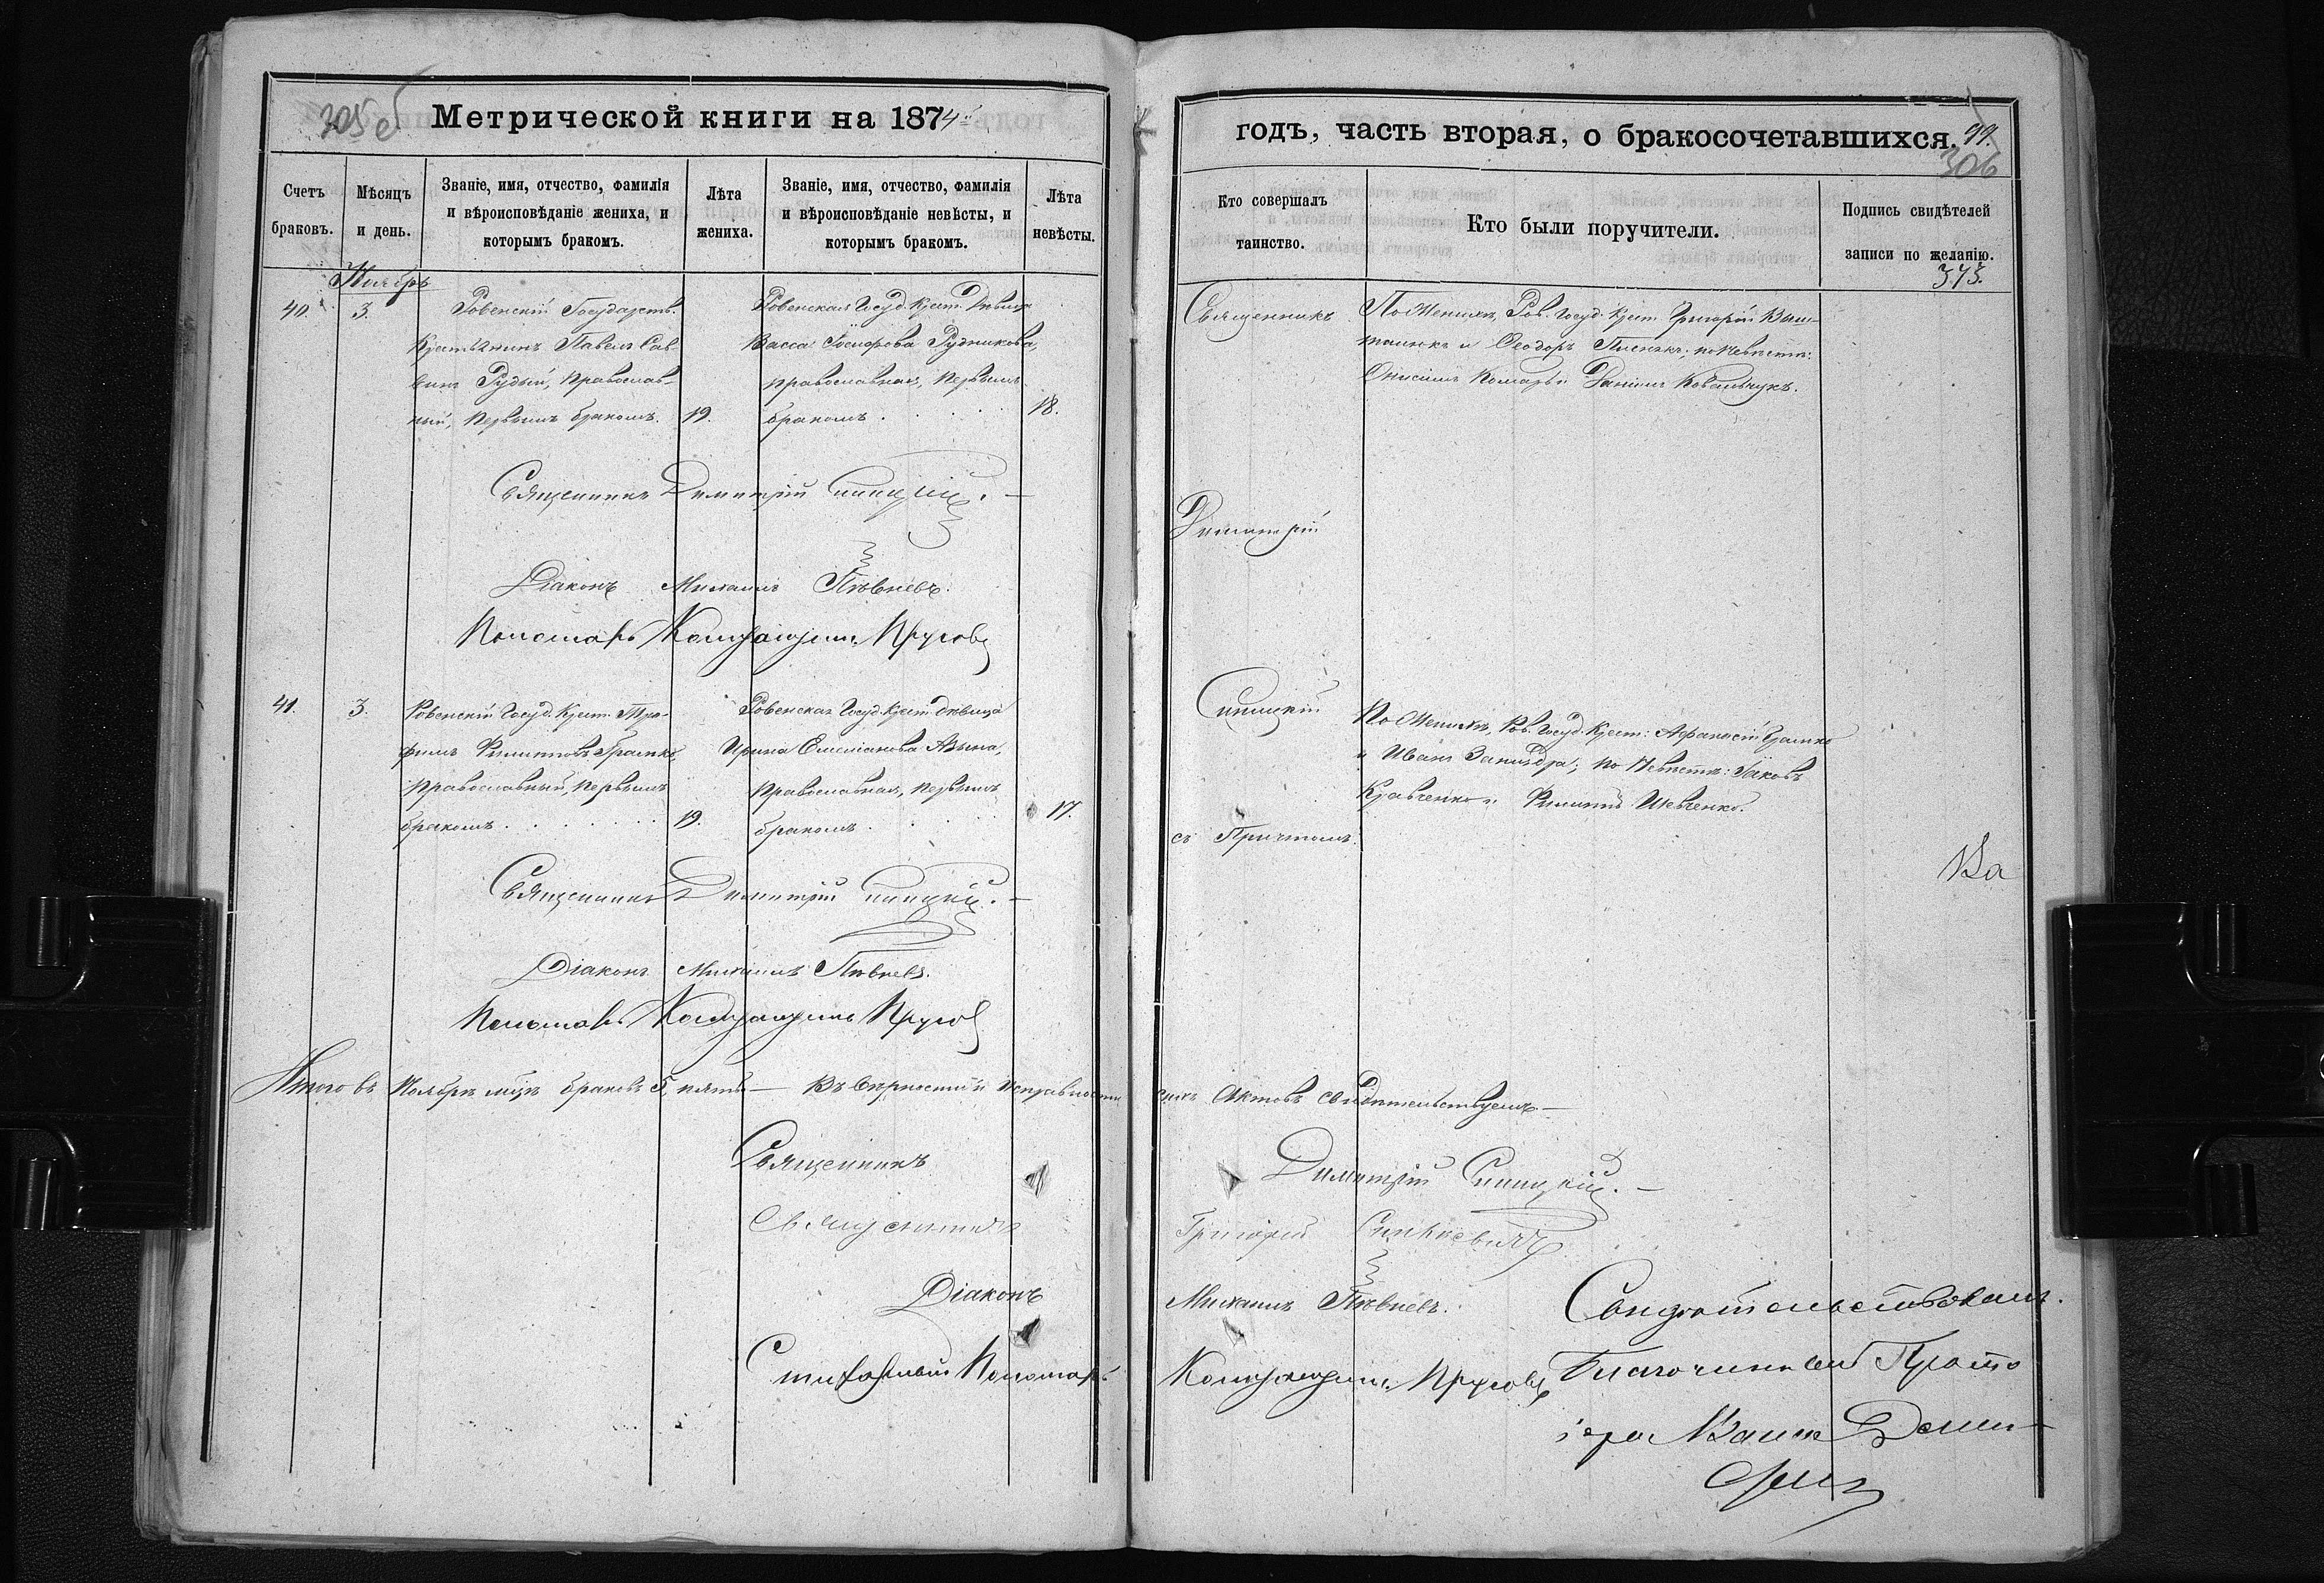 305 об
Метрической книги на 1874
Счетъ браковъ.
Мѣсяцъ и день.
Званіе, имя, отчество, фамилія и вѣроисповѣданіе жениха, и которымъ бракомъ.
Лѣта жениха.
Званіе, имя, отчество, фамилія и вѣроисповѣданіе невѣсты, и которымъ бракомъ.
Лѣта невѣсты.
Ноябрь
40.
3.
Ровенскій Государств.
Крестьянинъ Павелъ Сав-
винъ Рудый, Православ-
ный, первымъ бракомъ.
19.
Ровенская Госуд. Крест. Дѣвица
Васса Рудникова,
православная, первымъ
бракомъ
18.
Священникъ Димитрій
Діаконъ Михаилъ Пѣвневъ.
Пономарь
41.
3.
Ровенскій Госуд. Крест. Тро-
фимъ Филипповъ
Православный, первымъ
бракомъ
19.
Ровенская Госуд. Крест. дѣвица
Ирина Емеліанова
Православная, первымъ
бракомъ
17.
Священникъ Димитрій
Діаконъ Михаилъ Пѣвневъ.
Пономарь
Итого въ Ноябрѣ мцѣ браковъ 5, пять — Въ вѣрности и исправности
Священникъ
Священникъ
Діаконъ
Стихарный Пономарь
годъ, часть вторая, о бракосочетавшихся.
99.
306
Кто совершалъ таинство.
Кто были поручители.
Подпись свидѣтелей записи по желанію.
373.
Священникъ
По Женихѣ, Ров. Госуд. Крест. Григорій Ваш-
и Ѳеодоръ по Невѣстѣ:
Онисимъ Комаръ и Даніилъ Ковальчукъ.
Димитрій
Синицкій
По Женихѣ, Ров. Госуд. Крест: Афанасій
и Иванъ по Невѣстѣ: Іаковъ
Кравченко и Филиппъ Шевченко.
съ Причтомъ.
Ва
сихъ Актовъ свидѣтельствуемъ —
Димитрій Синицкій. —
Григорій Синкевичъ
Михаилъ Пѣвневъ.
Свидѣтельствовалъ
Благочинный Прото
іерей